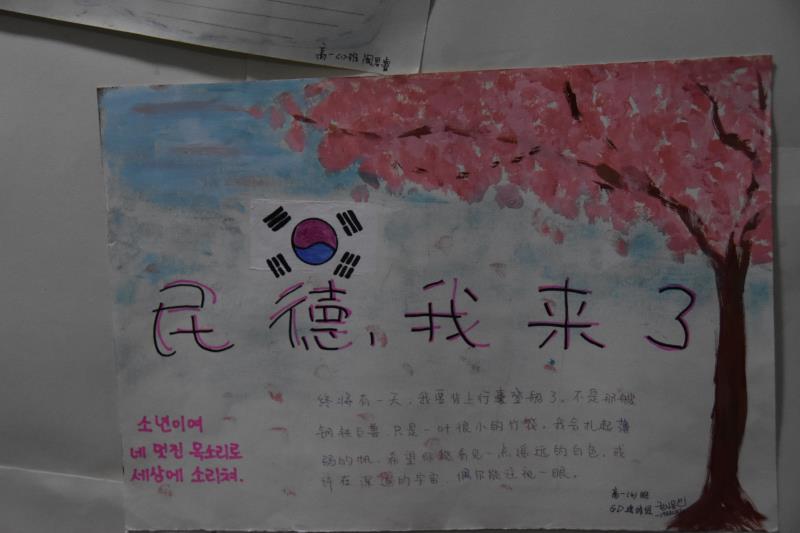 高一(7)班
民德,我来了
소년이여
네 멋진 목소리로
세상에 소리쳐.
终将有一天,我要背上行囊登船了。不是那艘
钢铁巨兽,只是一叶很小的竹筏。我会扎起薄
弱的帆,希望你能看见一点遥远的白色,或
许在深邃的宇宙,偶尔能注视一眼。
高一 班